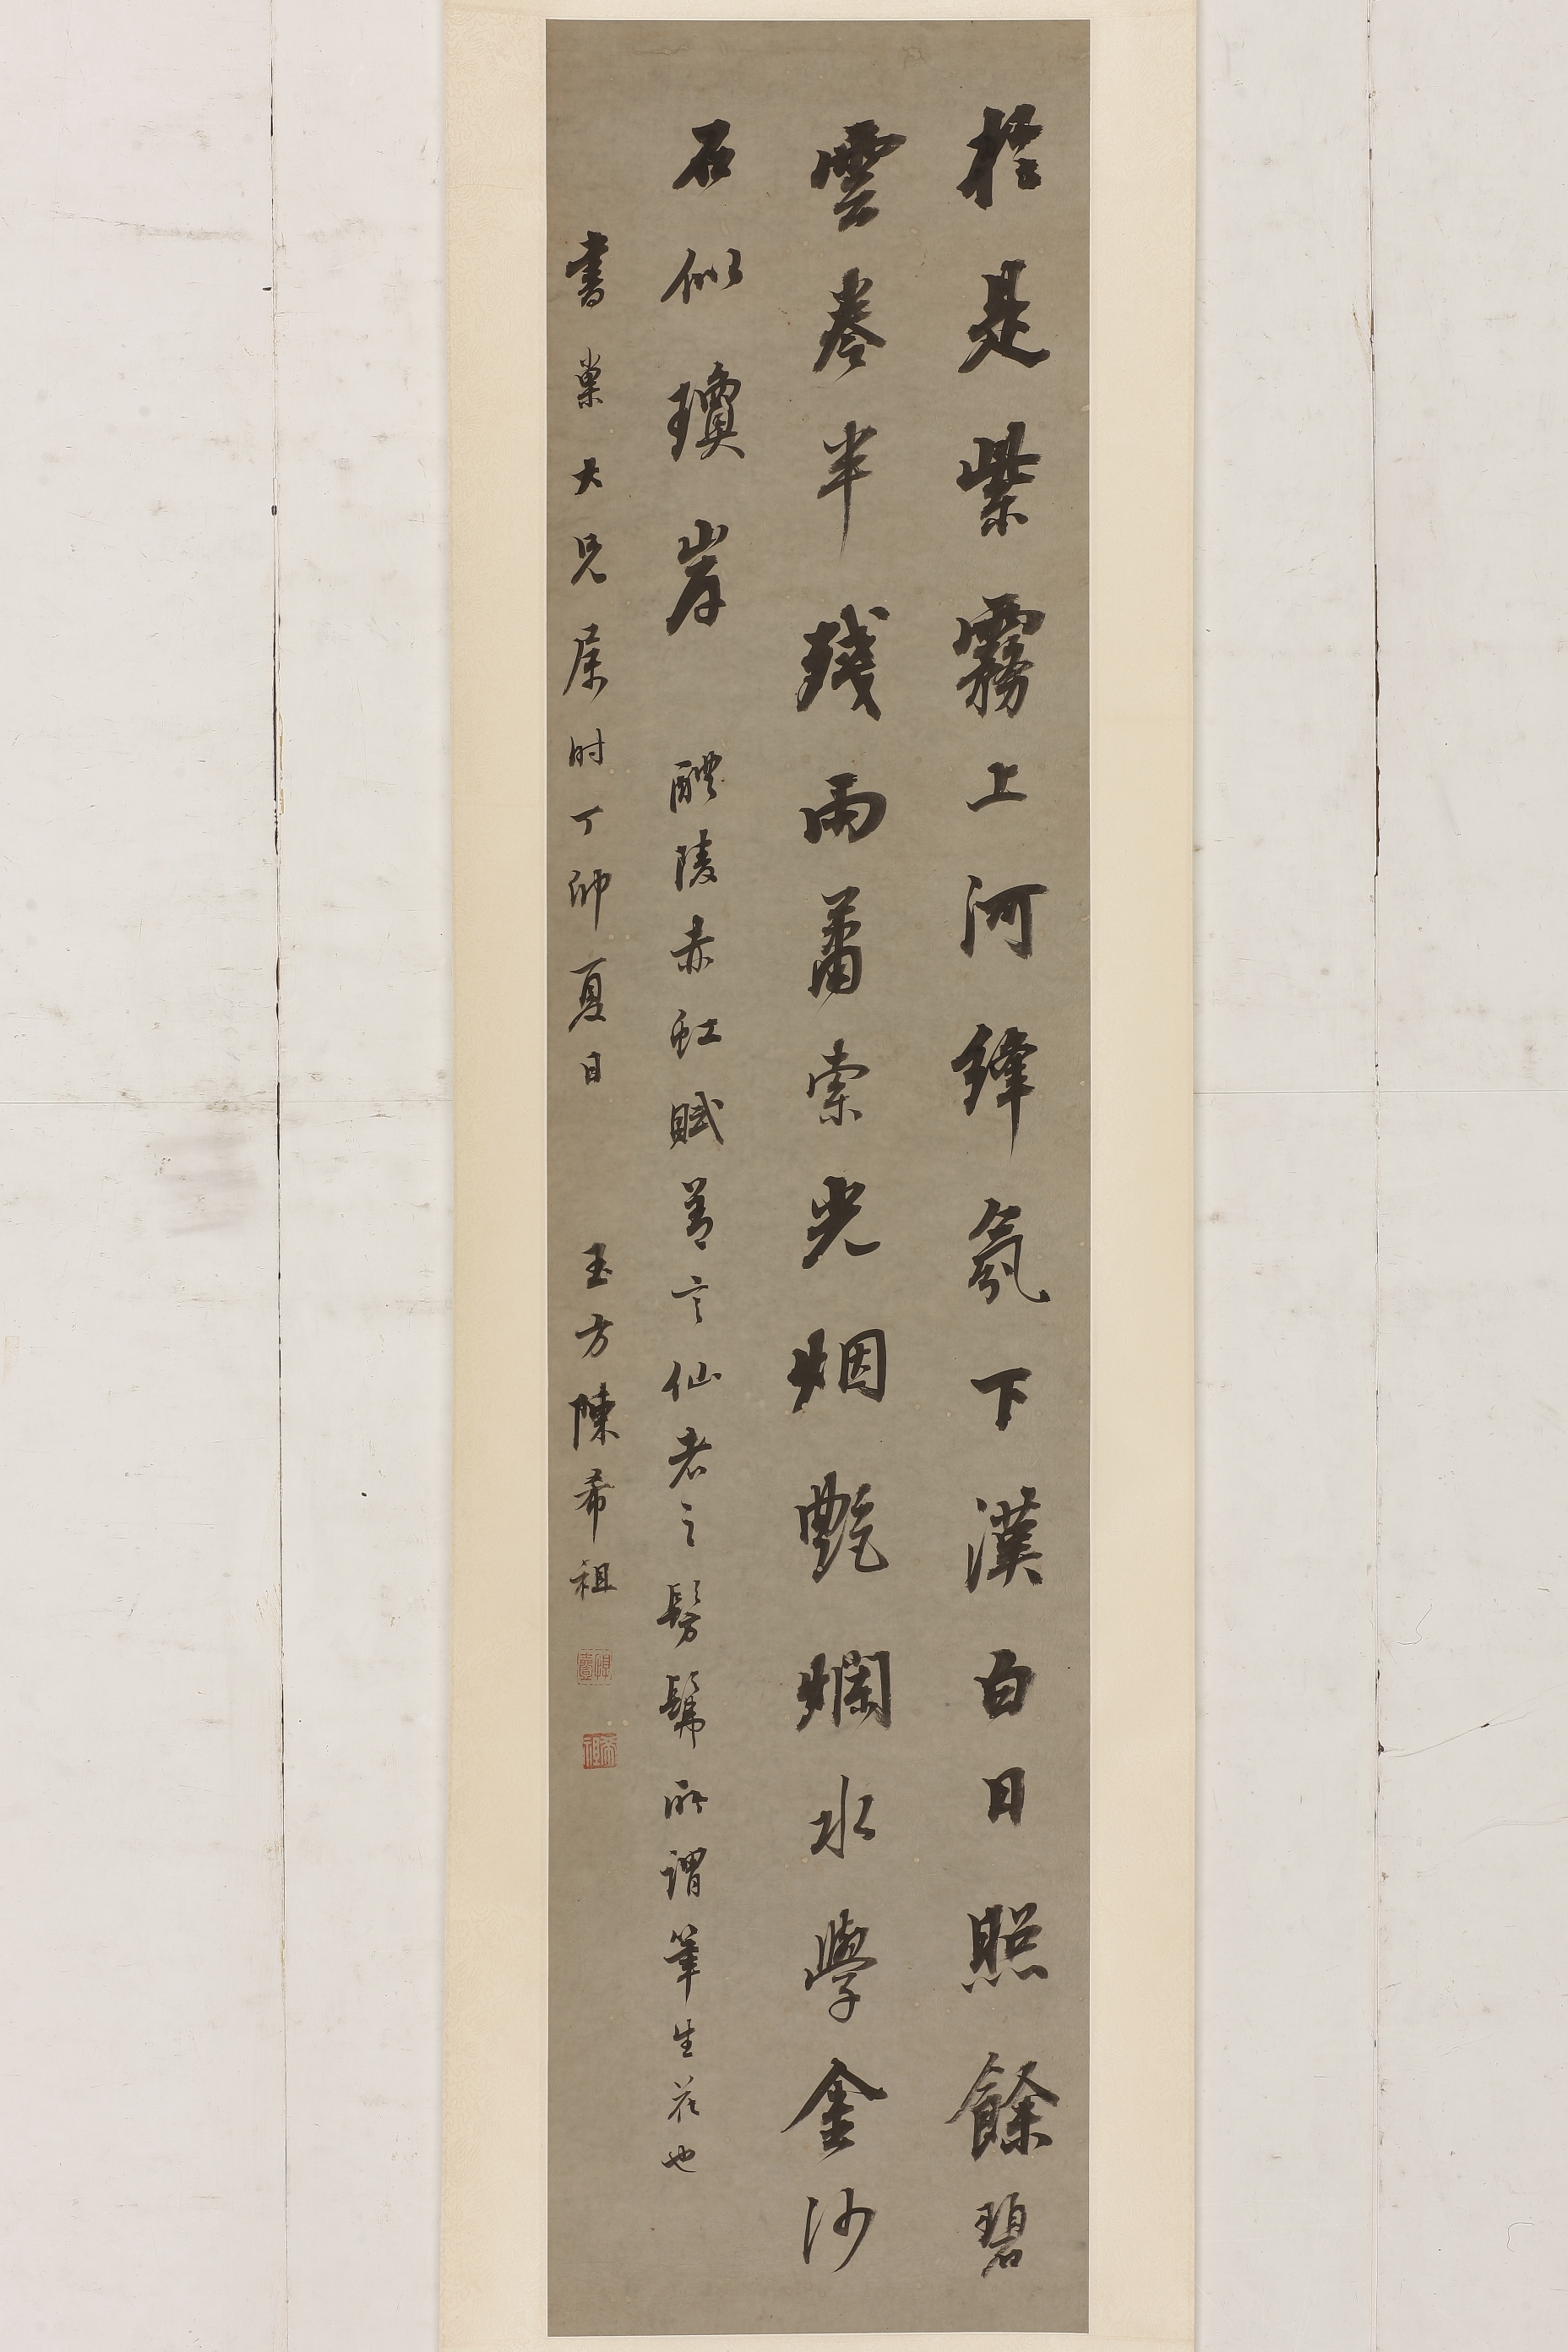 於是紫霧上河絳氛下漢白日照餘碧
雲卷半殘雨蕭索光烟艶爛水學金沙
石似瓊岸 醴陵赤虹賦善言仙者之髣髴所謂筆生花也
書巢大兄属时丁卯夏日 玉方陳希祖
希祖